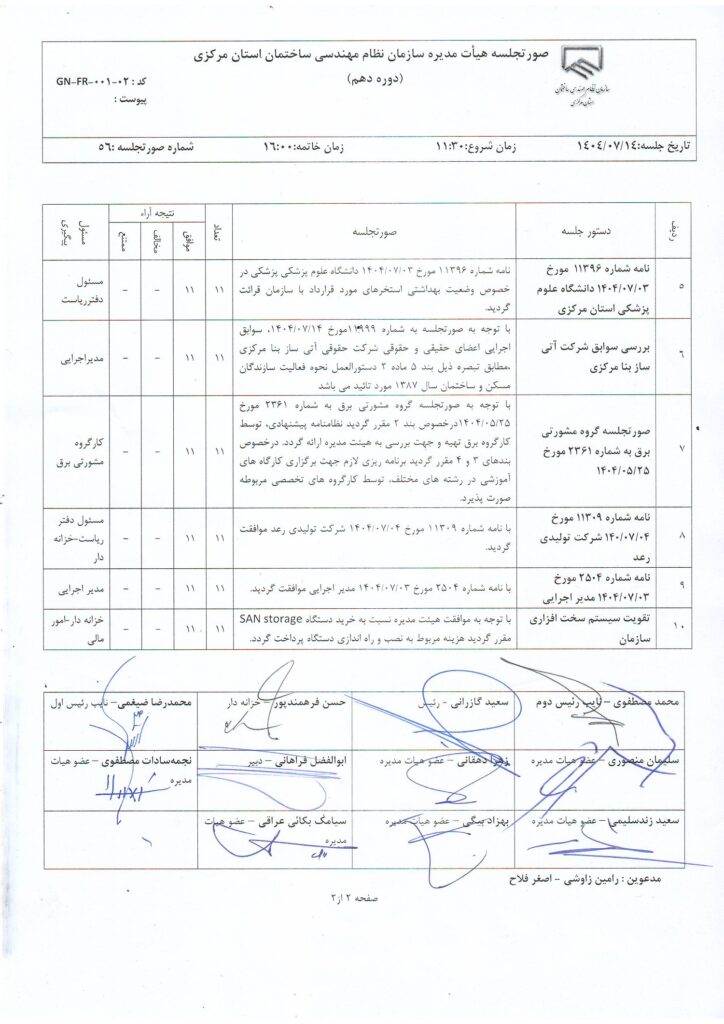 صورتجلسه هیأت مدیره سازمان نظام مهندسی ساختمان استان مرکزی
(دوره دهم)
سازمان نظام مهندسی ساختمان
استان مرکزی
کد : GN-FR-۰۰۱-۰۲
پیوست :
تاریخ جلسه:۱۴۰۴/۰۷/۱۴ زمان شروع:۱۱:۳۰ زمان خاتمه:۱۶:۰۰ شماره صورتجلسه :۵۶
ردیف دستور جلسه صورتجلسه تعداد نتیجه آراء مسئول پیگیری
موافق مخالف ممتنع
۵
نامه شماره ۱۱۳۹۶ مورخ
۱۴۰۴/۰۷/۰۳ دانشگاه علوم
پزشکی استان مرکزی
نامه شماره ۱۱۳۹۶ مورخ ۱۴۰۴/۰۷/۰۳ دانشگاه علوم پزشکی پزشکی در
خصوص وضعیت بهداشتی استخرهای مورد قرارداد با سازمان قرائت
گردید.
۱۱ ۱۱ - -
مسئول
دفترریاست
۶
بررسی سوابق شرکت آتی
ساز بنا مرکزی
با توجه به صورتجلسه به شماره ۱۱۹۹۹مورخ ۱۴۰۴/۰۷/۱۴، سوابق
اجرایی اعضای حقیقی و حقوقی شرکت حقوقی آتی ساز بنا مرکزی
،مطابق تبصره ذیل بند ۵ ماده ۲ دستورالعمل نحوه فعالیت سازندگان
مسکن و ساختمان سال ۱۳۸۷ مورد تائید می باشد
۱۱ ۱۱ - -
مدیراجرایی
۷
صورتجلسه گروه مشورتی
برق به شماره ۲۳۶۱ مورخ
۱۴۰۴/۰۵/۲۵
با توجه به صورتجلسه گروه مشورتی برق به شماره ۲۳۶۱ مورخ
۱۴۰۴/۰۵/۲۵درخصوص بند ۲ مقرر گردید نظامنامه پیشنهادی، توسط
کارگروه برق تهیه و جهت بررسی به هیئت مدیره ارائه گردد. درخصوص
بندهای ۳ و ۴ مقرر گردید برنامه ریزی لازم جهت برگزاری کارگاه های
آموزشی در رشته های مختلف، توسط کارگروه های تخصصی مربوطه
صورت پذیرد.
۱۱ ۱۱ - -
کارگروه
مشورتی برق
۸
نامه شماره ۱۱۳۰۹ مورخ
۱۴۰/۰۷/۰۴ شرکت تولیدی
رعد
با نامه شماره ۱۱۳۰۹ مورخ ۱۴۰۴/۰۷/۰۴ شرکت تولیدی رعد موافقت
گردید.
۱۱ ۱۱ - -
مسئول دفتر
ریاست-خزانه
دار
۹
نامه شماره ۲۵۰۴ مورخ
۱۴۰۴/۰۷/۰۳ مدیر اجرایی
با نامه شماره ۲۵۰۴ مورخ ۱۴۰۴/۰۷/۰۳ مدیر اجرایی موافقت گردید.
۱۱ ۱۱ - -
مدیر اجرایی
۱۰
تقویت سیستم سخت افزاری
سازمان
با توجه به موافقت هیئت مدیره نسبت به خرید دستگاه SAN storage
مقرر گردید هزینه مربوط به نصب و راه اندازی دستگاه پرداخت گردد.
۱۱ ۱۱ - -
خزانه دار-امور
مالی
محمد مصطفوی – نایب رئیس دوم سعید گازرانی - رئیس حسن فرهمندپور – خزانه دار محمدرضا ضیغمی – نایب رئیس اول
سلیمان منصوری – عضو هیات مدیره زهرا دهقانی – عضو هیات مدیره ابوالفضل فراهانی – دبیر نجمه‌سادات مصطفوی – عضو هیات
مدیره
سعید زندسلیمی – عضو هیات مدیره بهزاد بیگی – عضو هیات مدیره سیامک بکائی عراقی – عضو هیات
مدیره
مدعوین : رامین زاوشی - اصغر فلاح
صفحه ۲ از۲